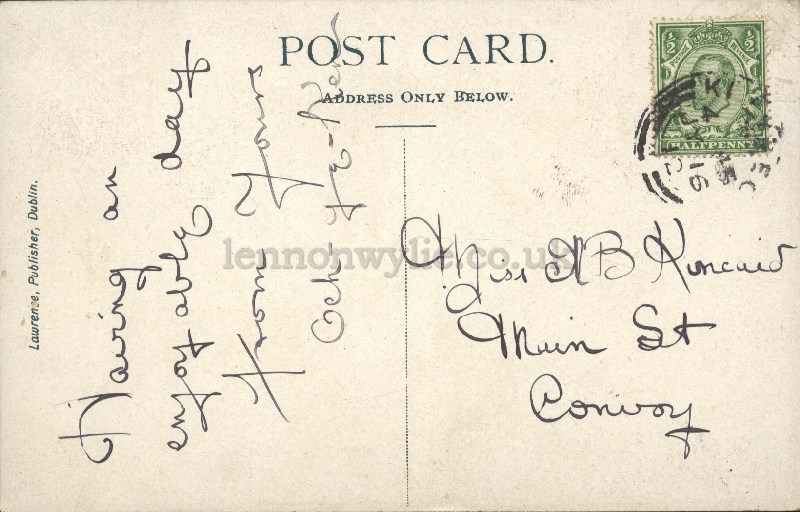 POST CARD.
ADDRESS ONLY BELOW.
Having an
enjoyable day
From Yours
Och-Ye-Ken
Miss A B Kincaid
Main St
Convoy
Lawrence, Publisher, Dublin.
½ ½
POSTAGE REVENUE
HALFPENNY
16
lennonwylie.co.uk